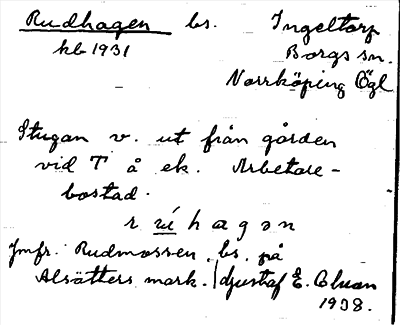 Rudhagen bs. Ingeltorp
kb 1931 Borgs sn.
Norrköping Ögl
Stugan v. ut från gården
vid T å ek. Arbetare-
bostad.
r ú h a g ə n
Jmfr. Rudmossen, bs. på
Alsätters mark. / Gustaf E.
1938.